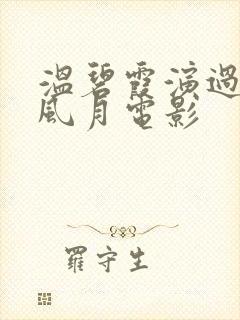 溫碧霞演過
風月電影
羅守生